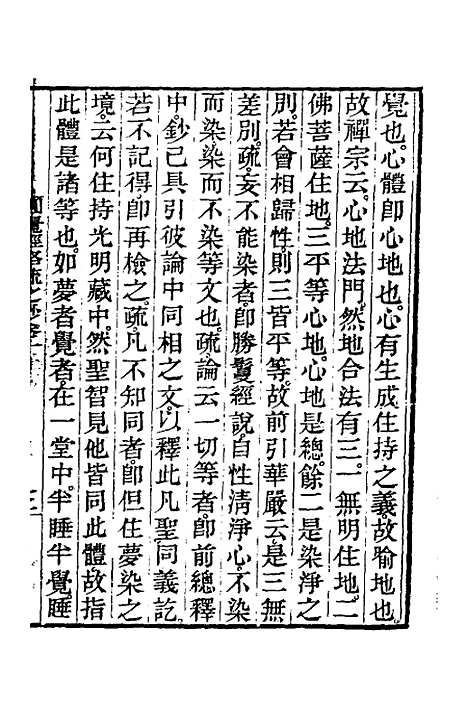 覺也。心體卽心地也。心有生成住持之義。故喻地也。
故禪宗云。心地法門。然地合法有三。一無明住地。二
佛菩薩住地。三平等心地。心地是總。餘二是染淨之
別。若會相歸性。則三皆平等。故前引華嚴云。是三無
差別。疏。妄不能染者。卽勝鬘經說。自性淸淨心。不染
而染。染而不染等文也。疏。論云一切等者。卽前總釋
中。鈔已具引彼論中同相之文。以釋此凡聖同義訖。
若不記得。卽再檢之。疏。凡不知同者。卽但住夢染之
境。云何住持光明藏中。然聖智見他皆同此體。故指
此體是諸等也。如夢者覺者。在一堂中。半睡半覺。睡
圓覺經略疏之鈔卷